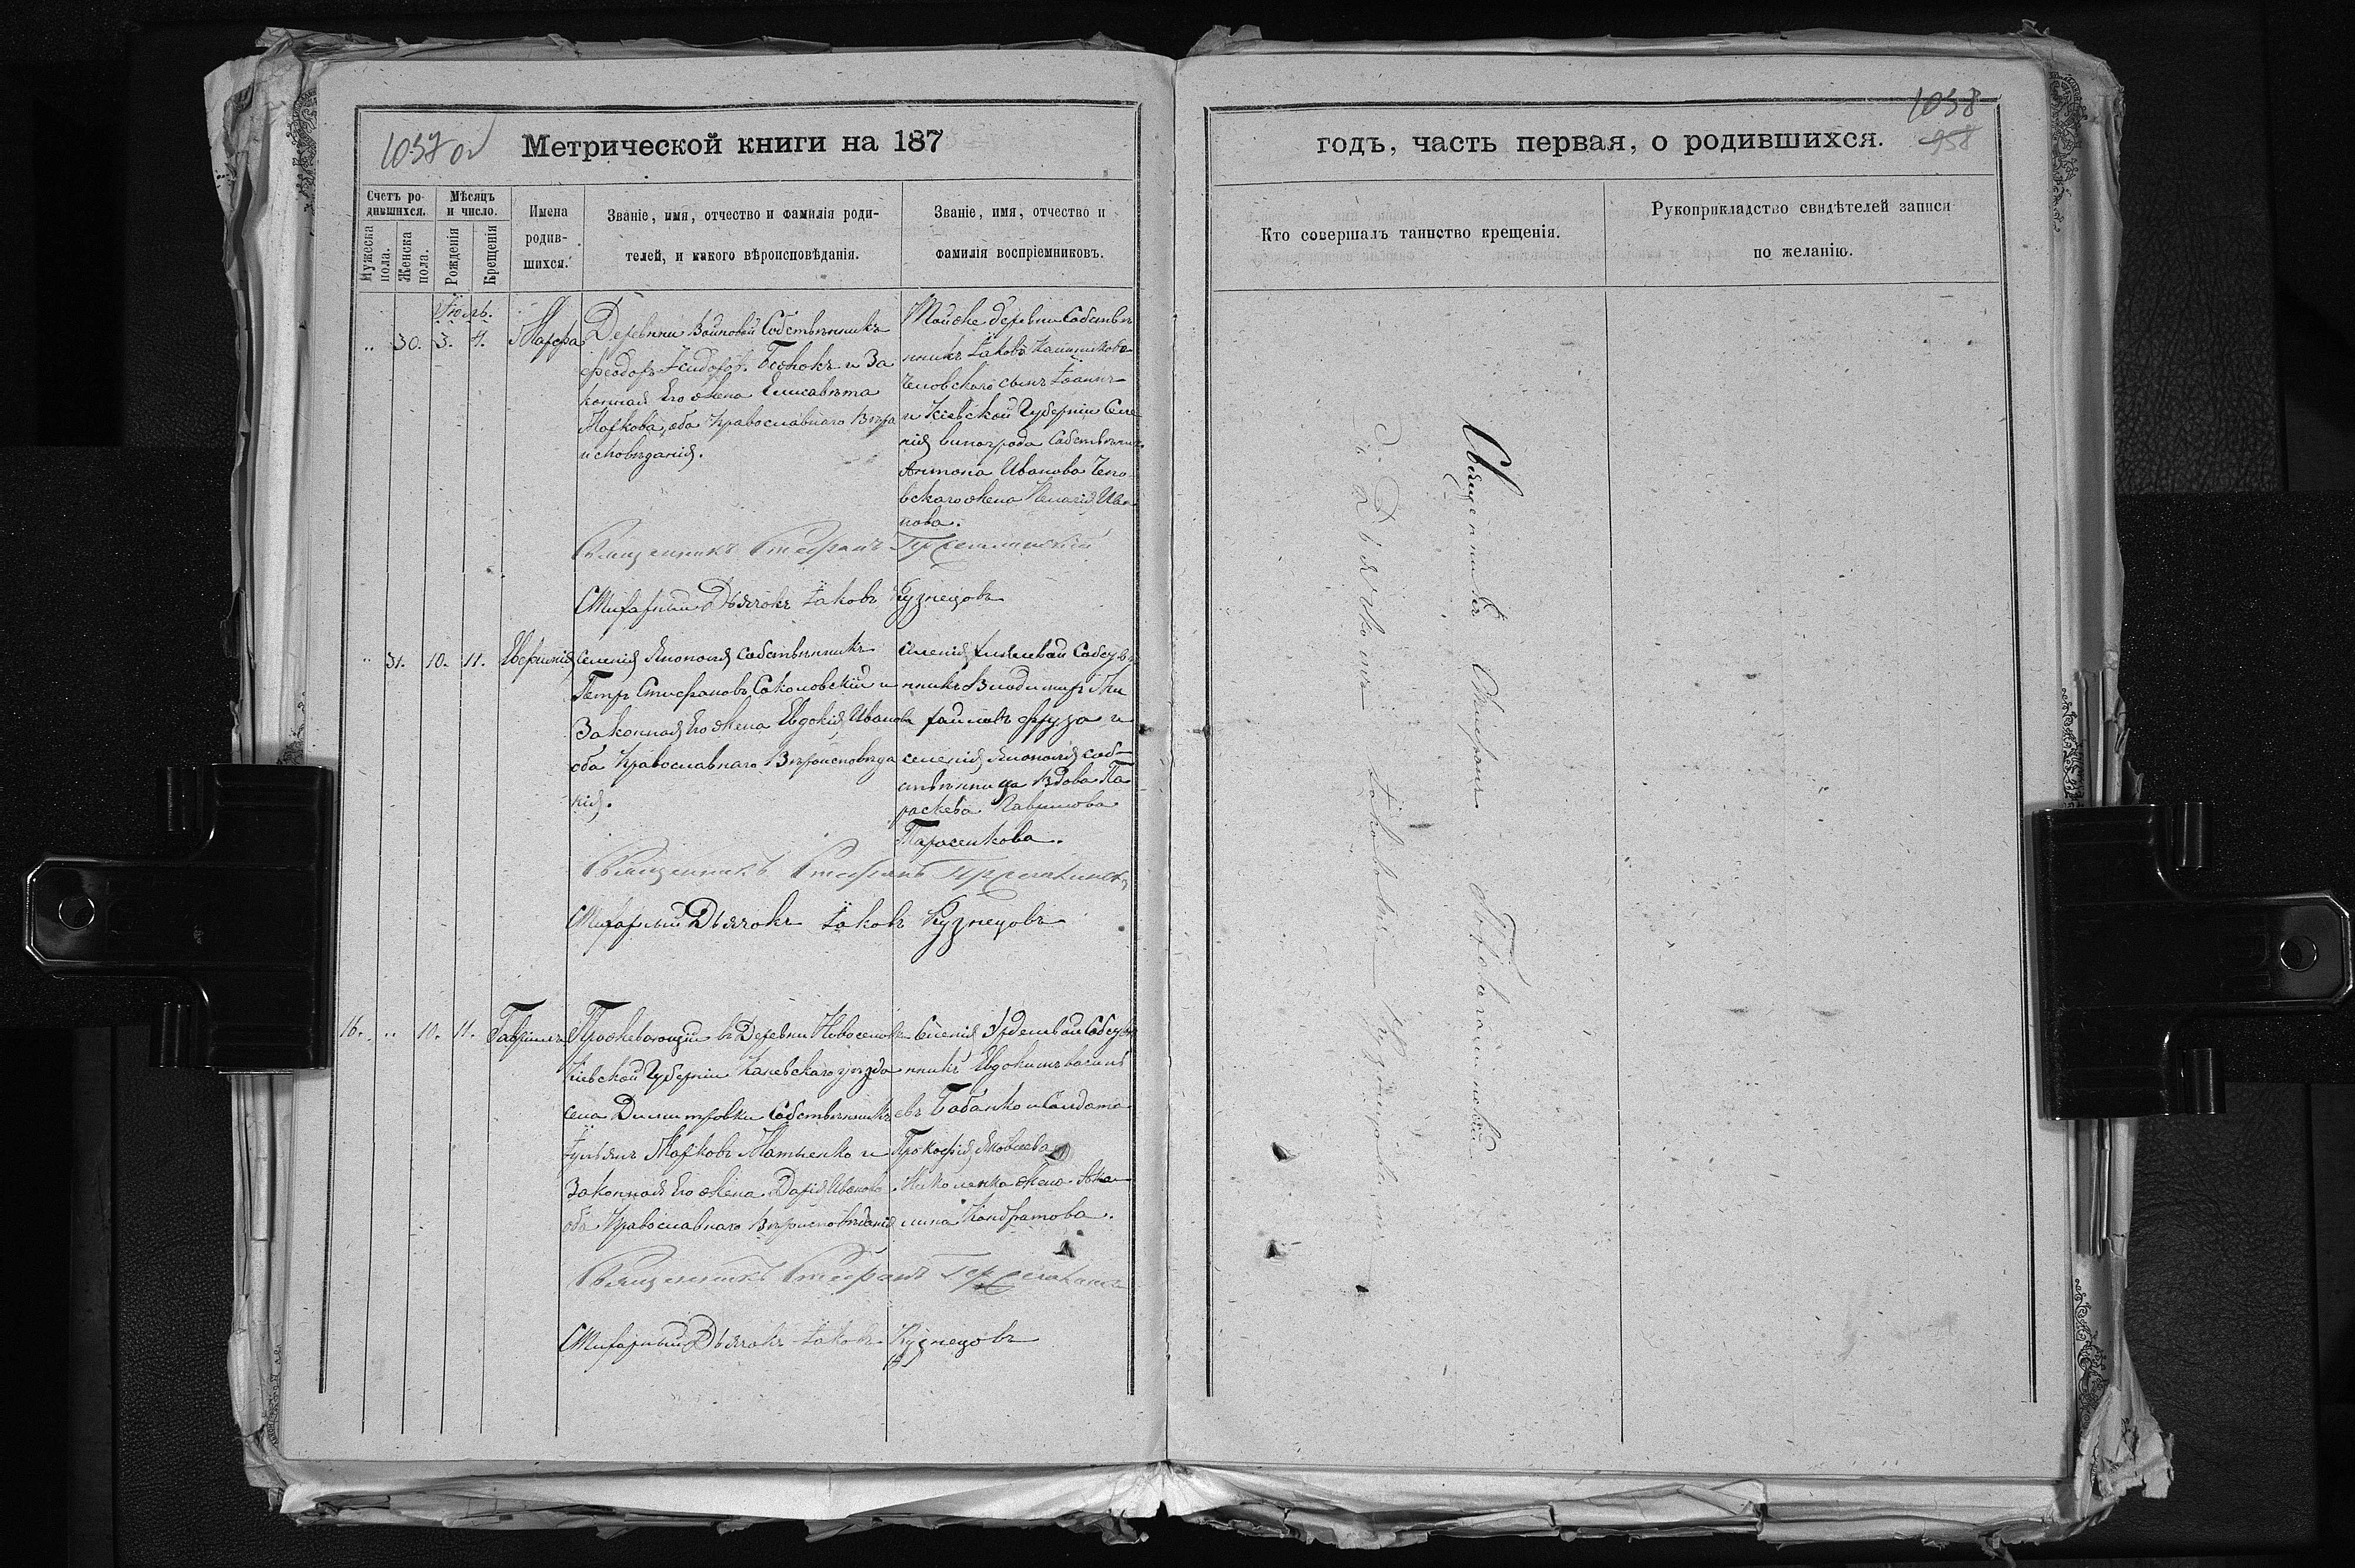 1037 об
Метрической книги на 187
Счетъ ро-
дившихся.
Мѣсяцъ
и число.
Мужеска
пола.
Женска
пола.
Рожденія
Крещенія
Имена
родив-
шихся.
Званіе, имя, отчество и фамилія роди-
телей, и какого вѣроисповѣданія.
Званіе, имя, отчество и
фамилія воспріемниковъ.
Іюль.
„ 30. 3. 4. Марфа
Деревни Собственникъ
Феодоръ Исидоровъ и За
конная Его Жена Елисавета
Маркова, оба Православнаго Вѣро
исповѣданія.
Той же деревни Собствен
никъ Іаковъ
сынъ Іоаннъ
и Кіевской Губерніи Селе
нія Винограда Собственника
Антона Иванова
жена Пелагія Ива
нова.
Священникъ Стефанъ
Стихарный Дьячокъ Іаковъ Кузнецовъ
„ 31. 10. 11. Евфимія
Селенія Японоля Собственникъ
Петръ Стефановъ Соколовскій и
Законная Его Жена Евдокія Иванова
оба Православнаго Вѣроисповѣда
нія.
Селенія Собствен
никъ Владимиръ Ми
хайловъ Фруза и
селенія Японоля соб-
ственница Вдова Па
раскева Гаврилова
Тарасенкова.
Священникъ Стефанъ
Стихарный Дьячокъ Іаковъ Кузнецовъ
16. „ 10. 11. Гавріилъ
Проживающий въ Деревни Новоселовке
Кіевской Губерніи Каневскаго уѣзда
села Димитровки Собственникъ
Іульянъ Марковъ Матіенко и
Законная Его Жена Дарія Иванова
оба Православнаго Вѣроисповѣданія
Селенія Собствен
никъ Евдокимъ Василь
евъ Бабанко и Солдата
Прокофія Яковлева
Николенка жена Аку
лина Кондратова.
Священникъ Стефанъ
Стихарный Дьячокъ Іаковъ Кузнецовъ
1038
958
годъ, часть первая, о родившихся.
Кто совершалъ таинство крещенія.
Рукоприкладство свидѣтелей записи
по желанію.
Священникъ Стефанъ
съ Дьячкомъ Іаковомъ Кузнецовымъ